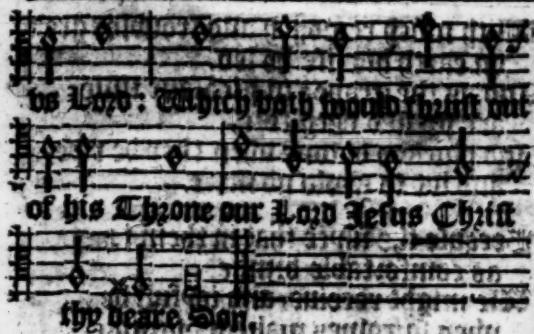 vs Lord: Which both would thrust out
of his Throne our Lord Jesus Christ
thy deare Son.